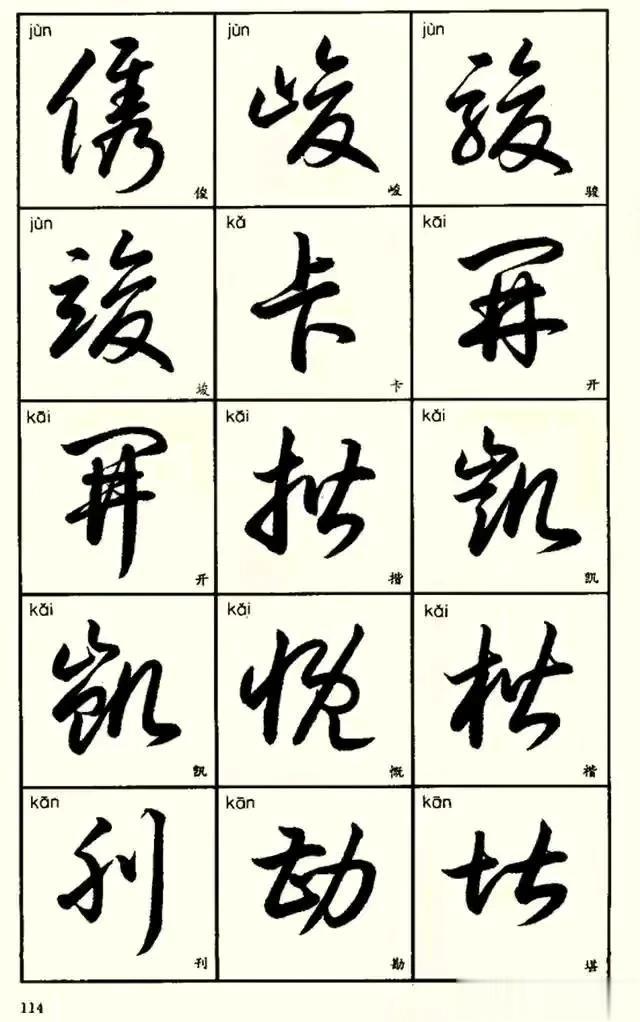 jùn jùn jùn
儁 峻 駿
俊 峻 骏
jùn kǎ kāi
竣 卡 開
竣 卡 开
kāi kāi kǎi
開 揩 凱
开 揩 凯
kǎi kǎi kǎi
凱 慨 楷
凯 慨 楷
kān kān kān
刊 勘 堪
刊 勘 堪
114